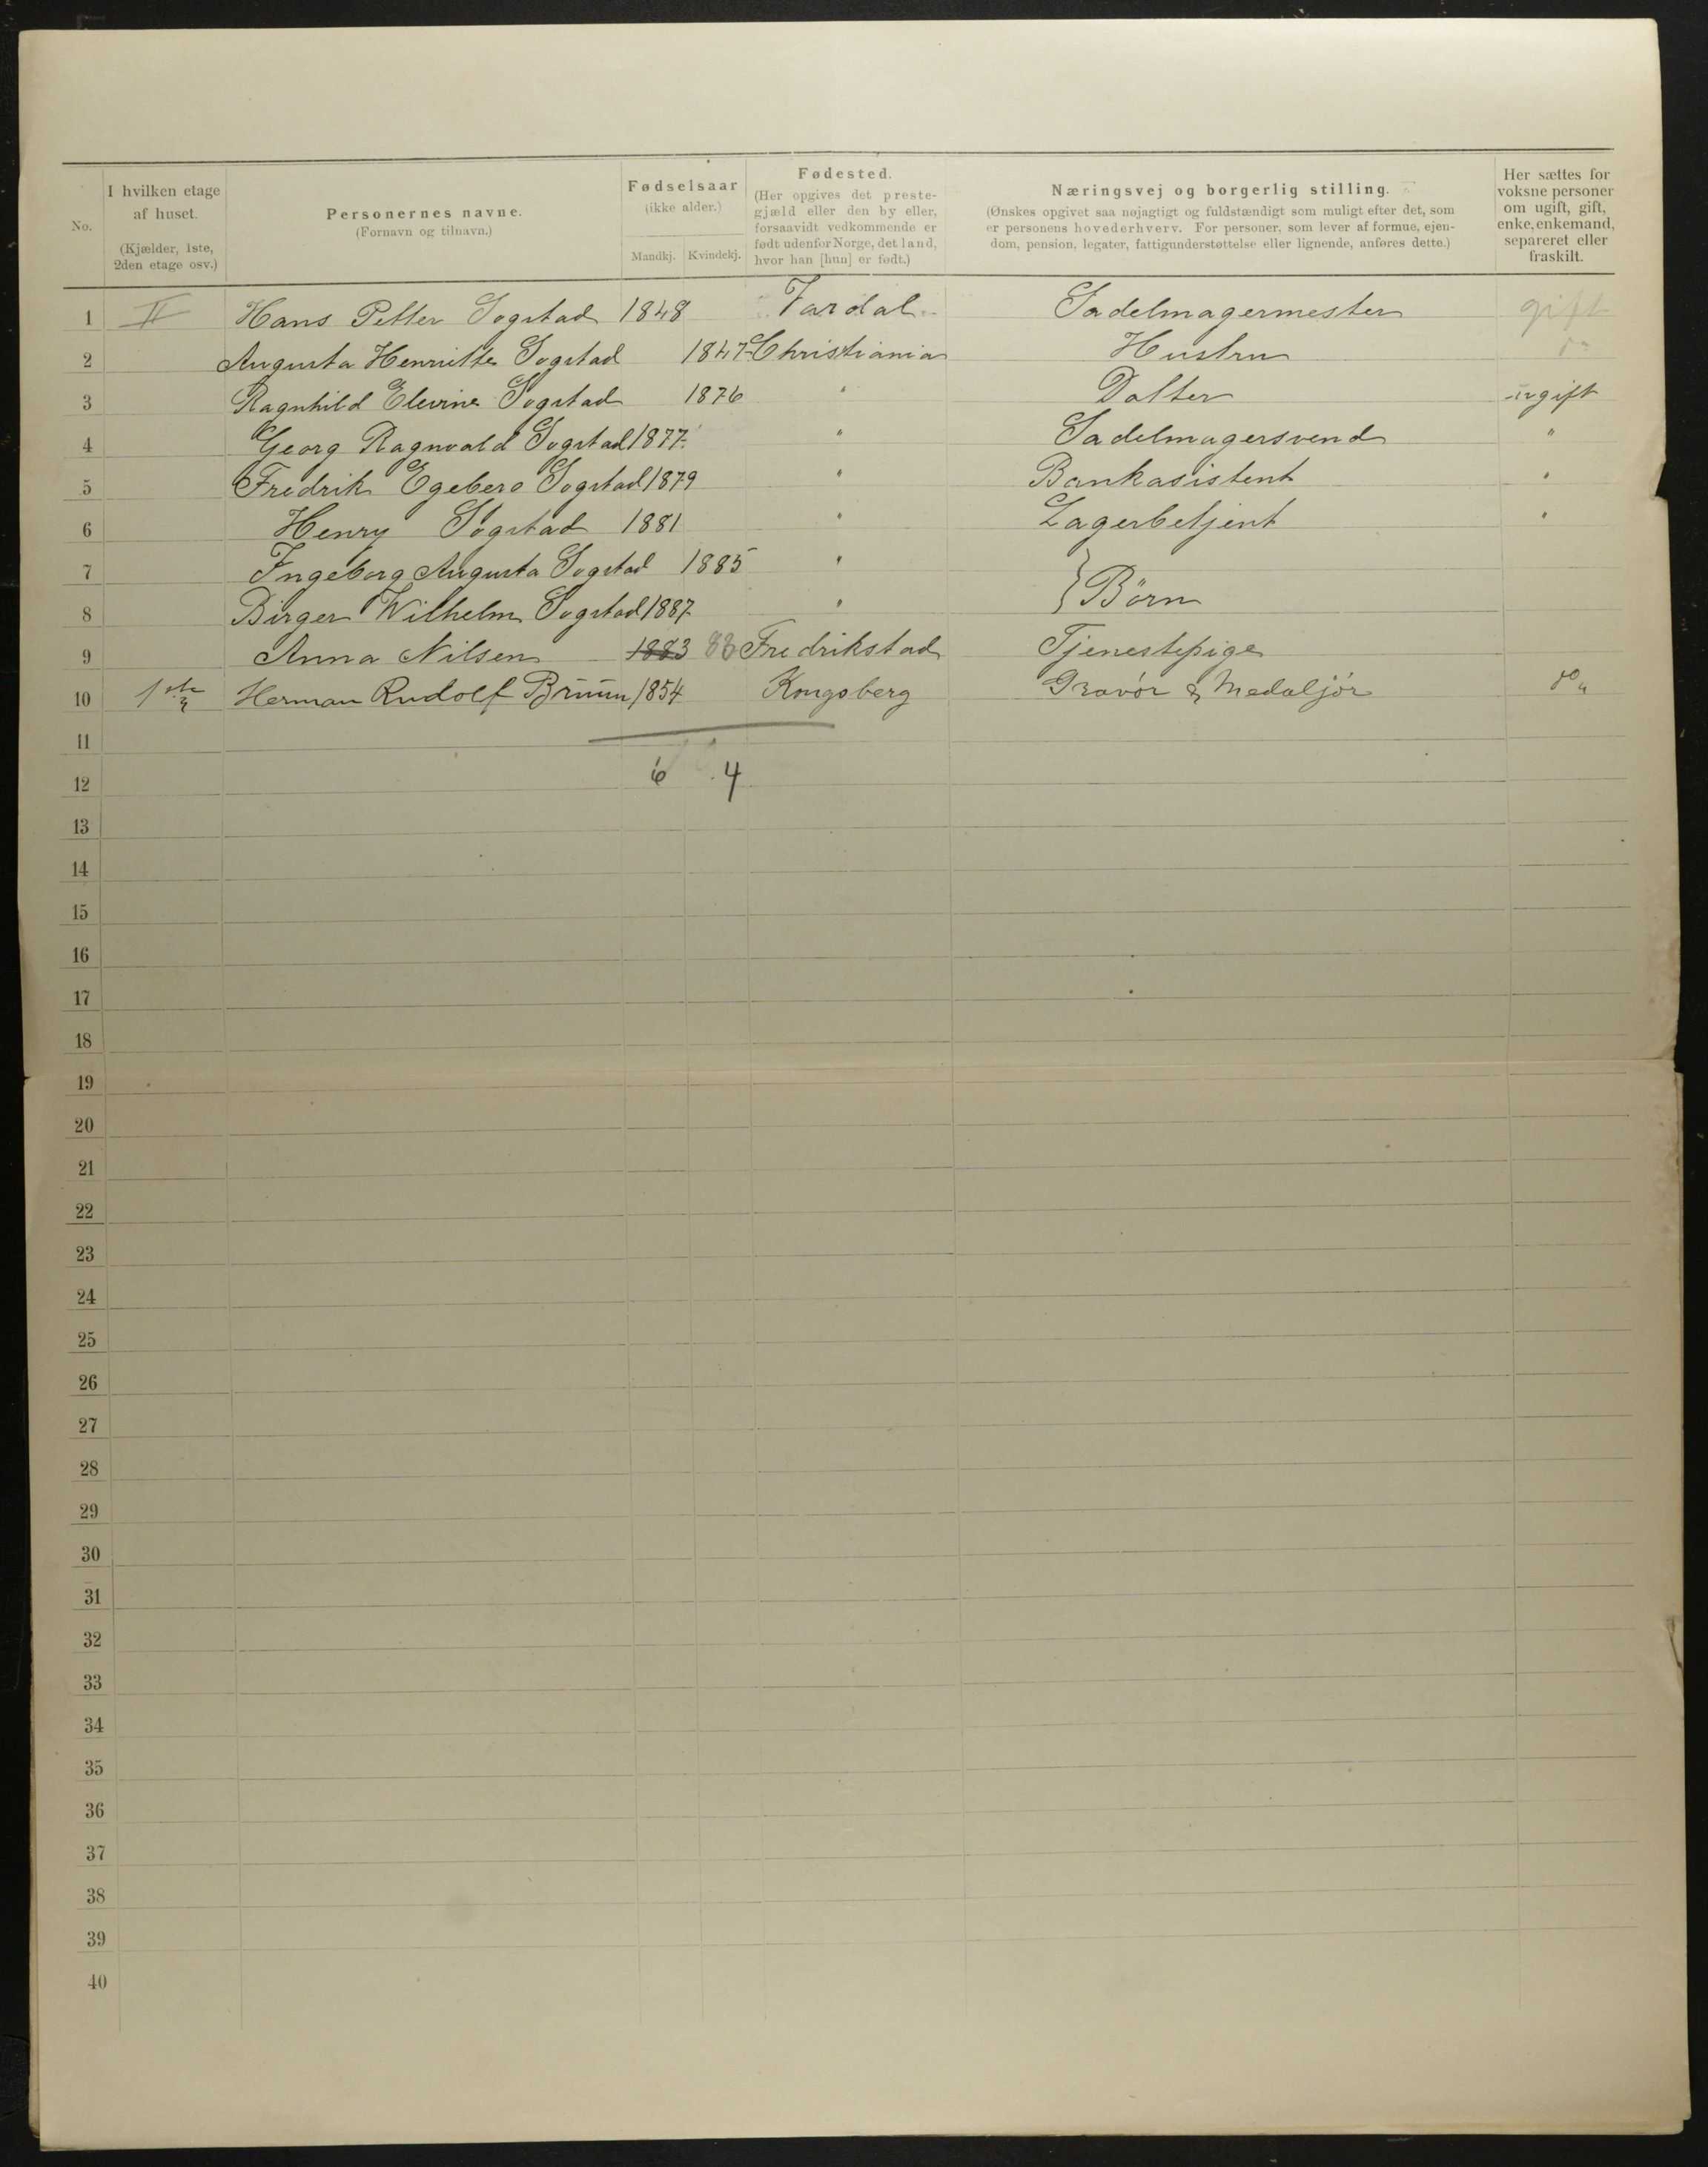 No.
I hvilken etage af huset. (Kjælder, 1ste, 2den etage osv.)
Personernes navne. (Fornavn og tilnavn.)
Fødselsaar (ikke alder.) Mandkj. Kvindekj.
Fødested. (Her opgives det prestegjæld eller den by eller, forsaavidt vedkommende er født udenfor Norge, det land, hvor han [hun] er født.)
Næringsvej og borgerlig stilling. (Ønskes opgivet saa nøjagtigt og fuldstændigt som muligt efter det, som er personens hovederhverv. For personer, som lever af formue, ejendom, pension, legater, fattigunderstøttelse eller lignende, anføres dette.)
Her sættes for voksne personer om ugift, gift, enke, enkemand, separeret eller fraskilt.
1 II Hans Petter Sogstad 1848 Vardal Sadelmagermester gift
2 Augusta Henriette Sogstad 1847 Christiania Hustru do
3 Ragnhild Elevine Sogstad 1876 " Datter ugift
4 Georg Ragnvald Sogstad 1877 " Sadelmagersvend "
5 Fredrik Egeberg Sogstad 1879 " Bankasistent "
6 Henry Sogstad 1881 " Lagerbetjent "
7 Ingeborg Augusta Sogstad 1885 "
8 Birger Wilhelm Sogstad 1887 " } Børn
9 Anna Nilsen 1883 83 Fredrikstad Tjenestepige
10 1ste Herman Rudolf Bruun 1854 Kongsberg Gravør & Medaljør do "
11
12 6 4
13
14
15
16
17
18
19
20
21
22
23
24
25
26
27
28
29
30
31
32
33
34
35
36
37
38
39
40